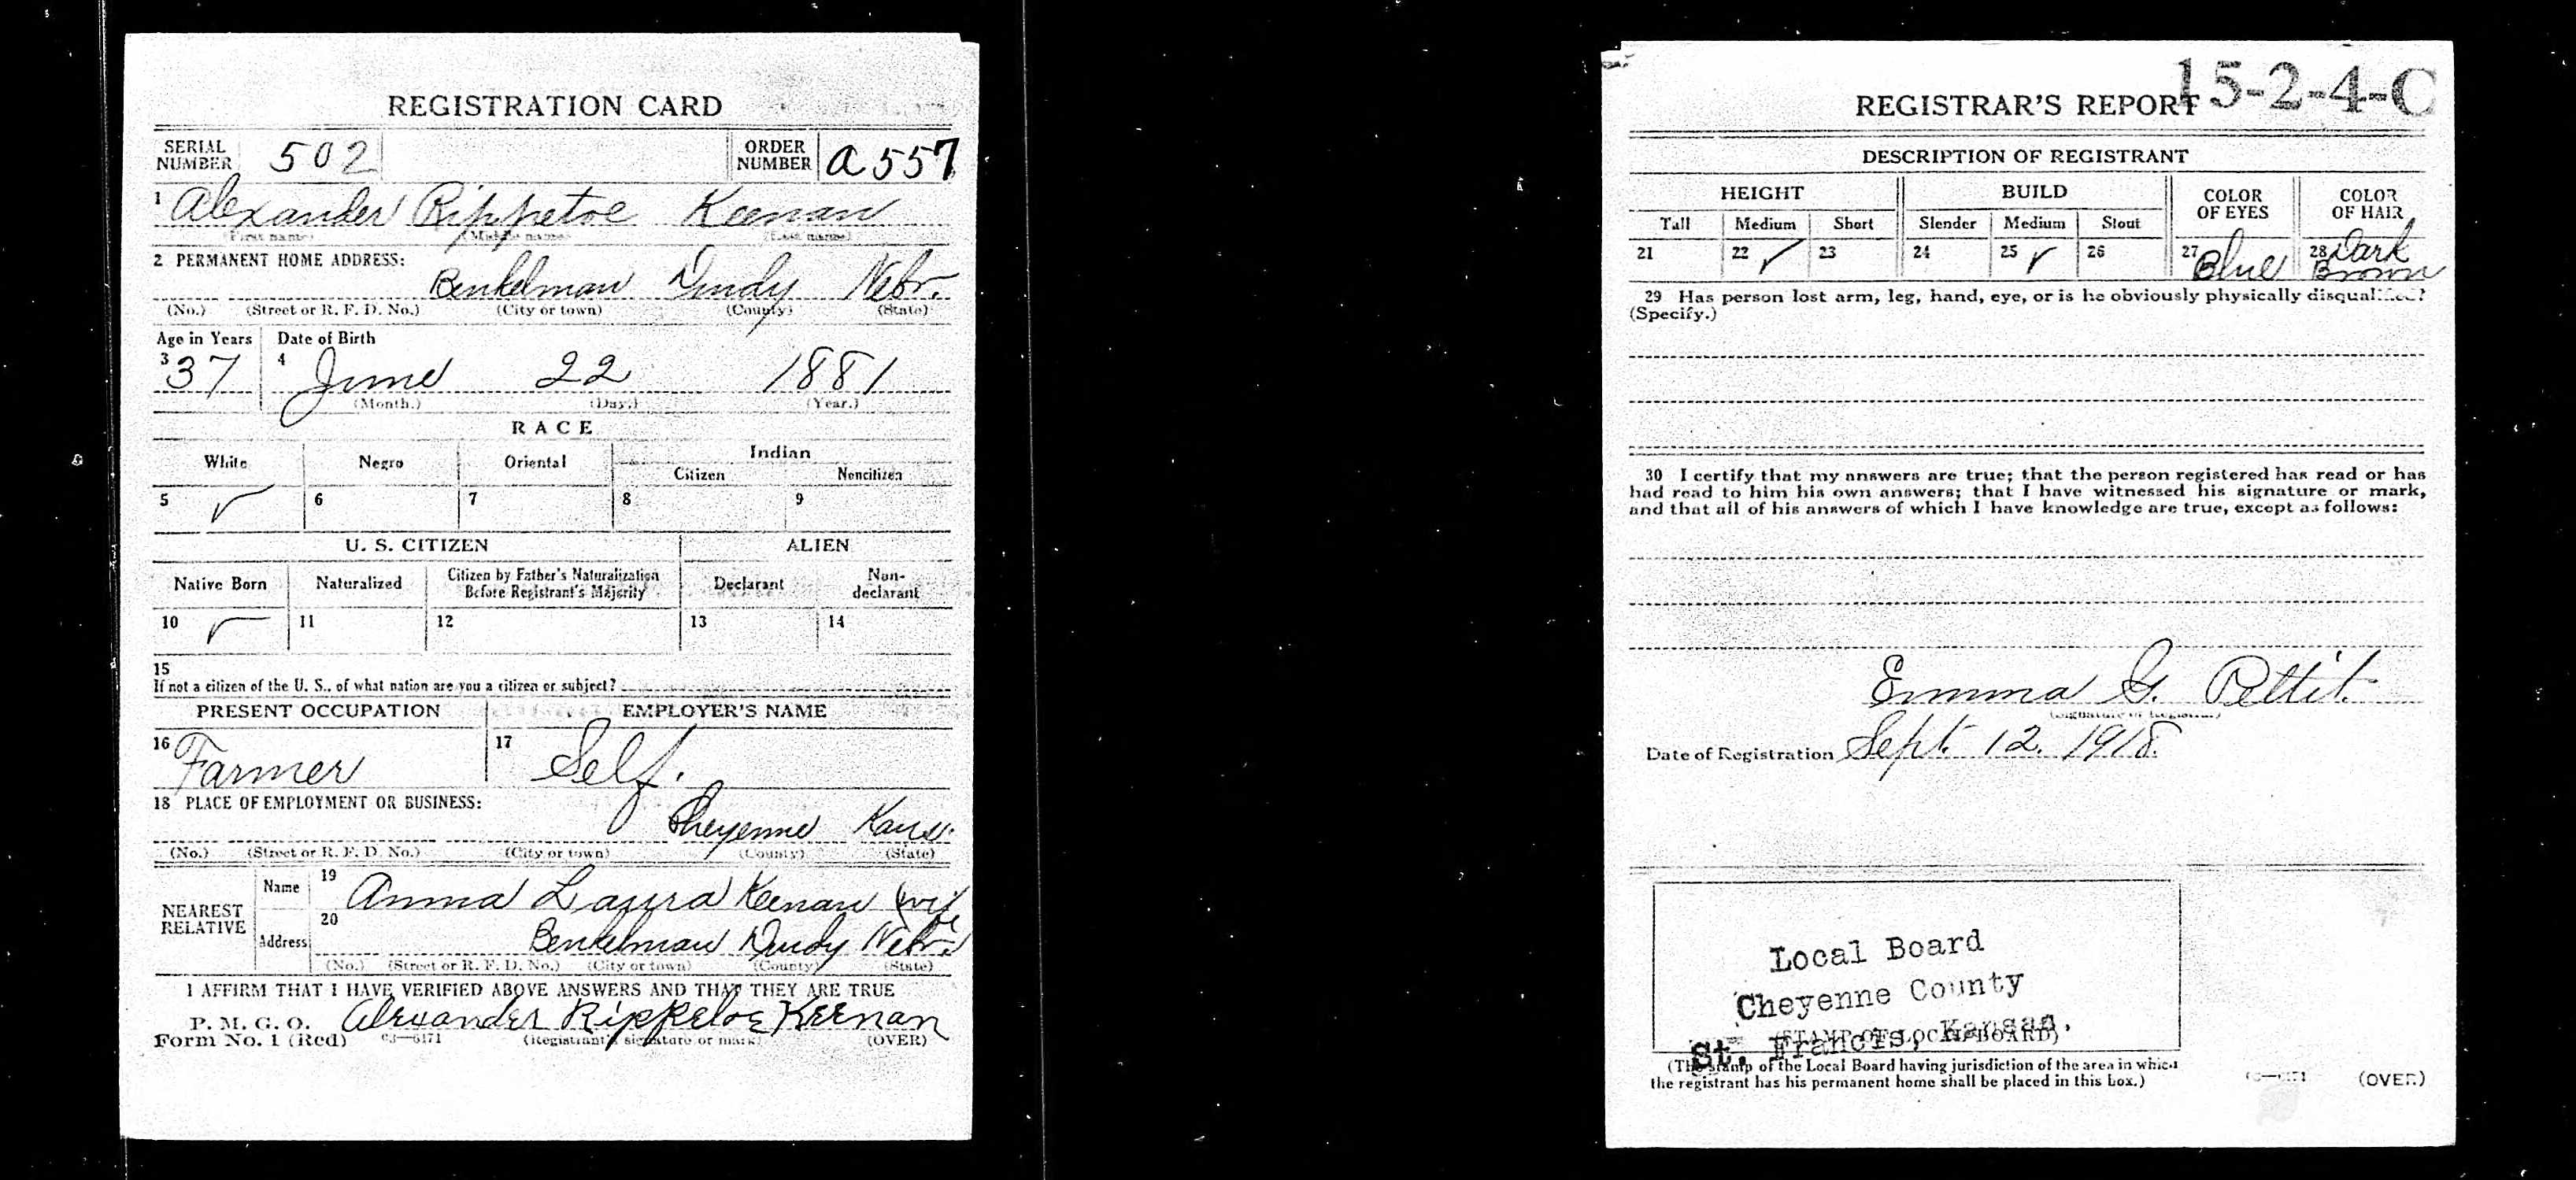 REGISTRATION CARD
SERIAL NUMBER 502 ORDER NUMBER a 557
1 Alexander Rippetoe Keenan
(First name) (Middle name) (Last name)
2 PERMANENT HOME ADDRESS:
Benkelman Dundy Nebr.
(No.) (Street or R. F. D. No.) (City or town) (County) (State)
Age in Years Date of Birth
3 37 4 June 22 1881
(Month.) (Day.) (Year.)
RACE
White Negro Oriental Indian
Citizen Noncitizen
5 ✓ 6 7 8 9
U. S. CITIZEN ALIEN
Native Born Naturalized Citizen by Father's Naturalization Before Registrant's Majority Declarant Non-declarant
10 ✓ 11 12 13 14
15
If not a citizen of the U. S., of what nation are you a citizen or subject?
PRESENT OCCUPATION EMPLOYER'S NAME
16 Farmer 17 Self.
18 PLACE OF EMPLOYMENT OR BUSINESS:
Cheyenne Kans.
(No.) (Street or R. F. D. No.) (City or town) (County) (State)
NEAREST RELATIVE
Name 19 Anna Laura Keenan (wife
Address 20 Benkelman Dundy Nebr.
(No.) (Street or R. F. D. No.) (City or town) (County) (State)
I AFFIRM THAT I HAVE VERIFIED ABOVE ANSWERS AND THAT THEY ARE TRUE
P. M. G. O.
Form No. 1 (Red) 03—6171
Alexander Rippetoe Keenan
(Registrant's signature or mark) (OVER)
15-2-4-C
REGISTRAR'S REPORT
DESCRIPTION OF REGISTRANT
HEIGHT BUILD COLOR OF EYES COLOR OF HAIR
Tall Medium Short Slender Medium Stout
21 22 ✓ 23 24 25 ✓ 26 27 Blue 28 Dark Brown
29 Has person lost arm, leg, hand, eye, or is he obviously physically disqualified?
(Specify.)
30 I certify that my answers are true; that the person registered has read or has
had read to him his own answers; that I have witnessed his signature or mark,
and that all of his answers of which I have knowledge are true, except as follows:
Emma G. Pettit.
(Signature of Registrar)
Date of Registration Sept. 12. 1918.
Local Board
Cheyenne County
St. Francis, Kansas.
(STAMP OF LOCAL BOARD)
(The stamp of the Local Board having jurisdiction of the area in which
the registrant has his permanent home shall be placed in this box.)
(OVER)